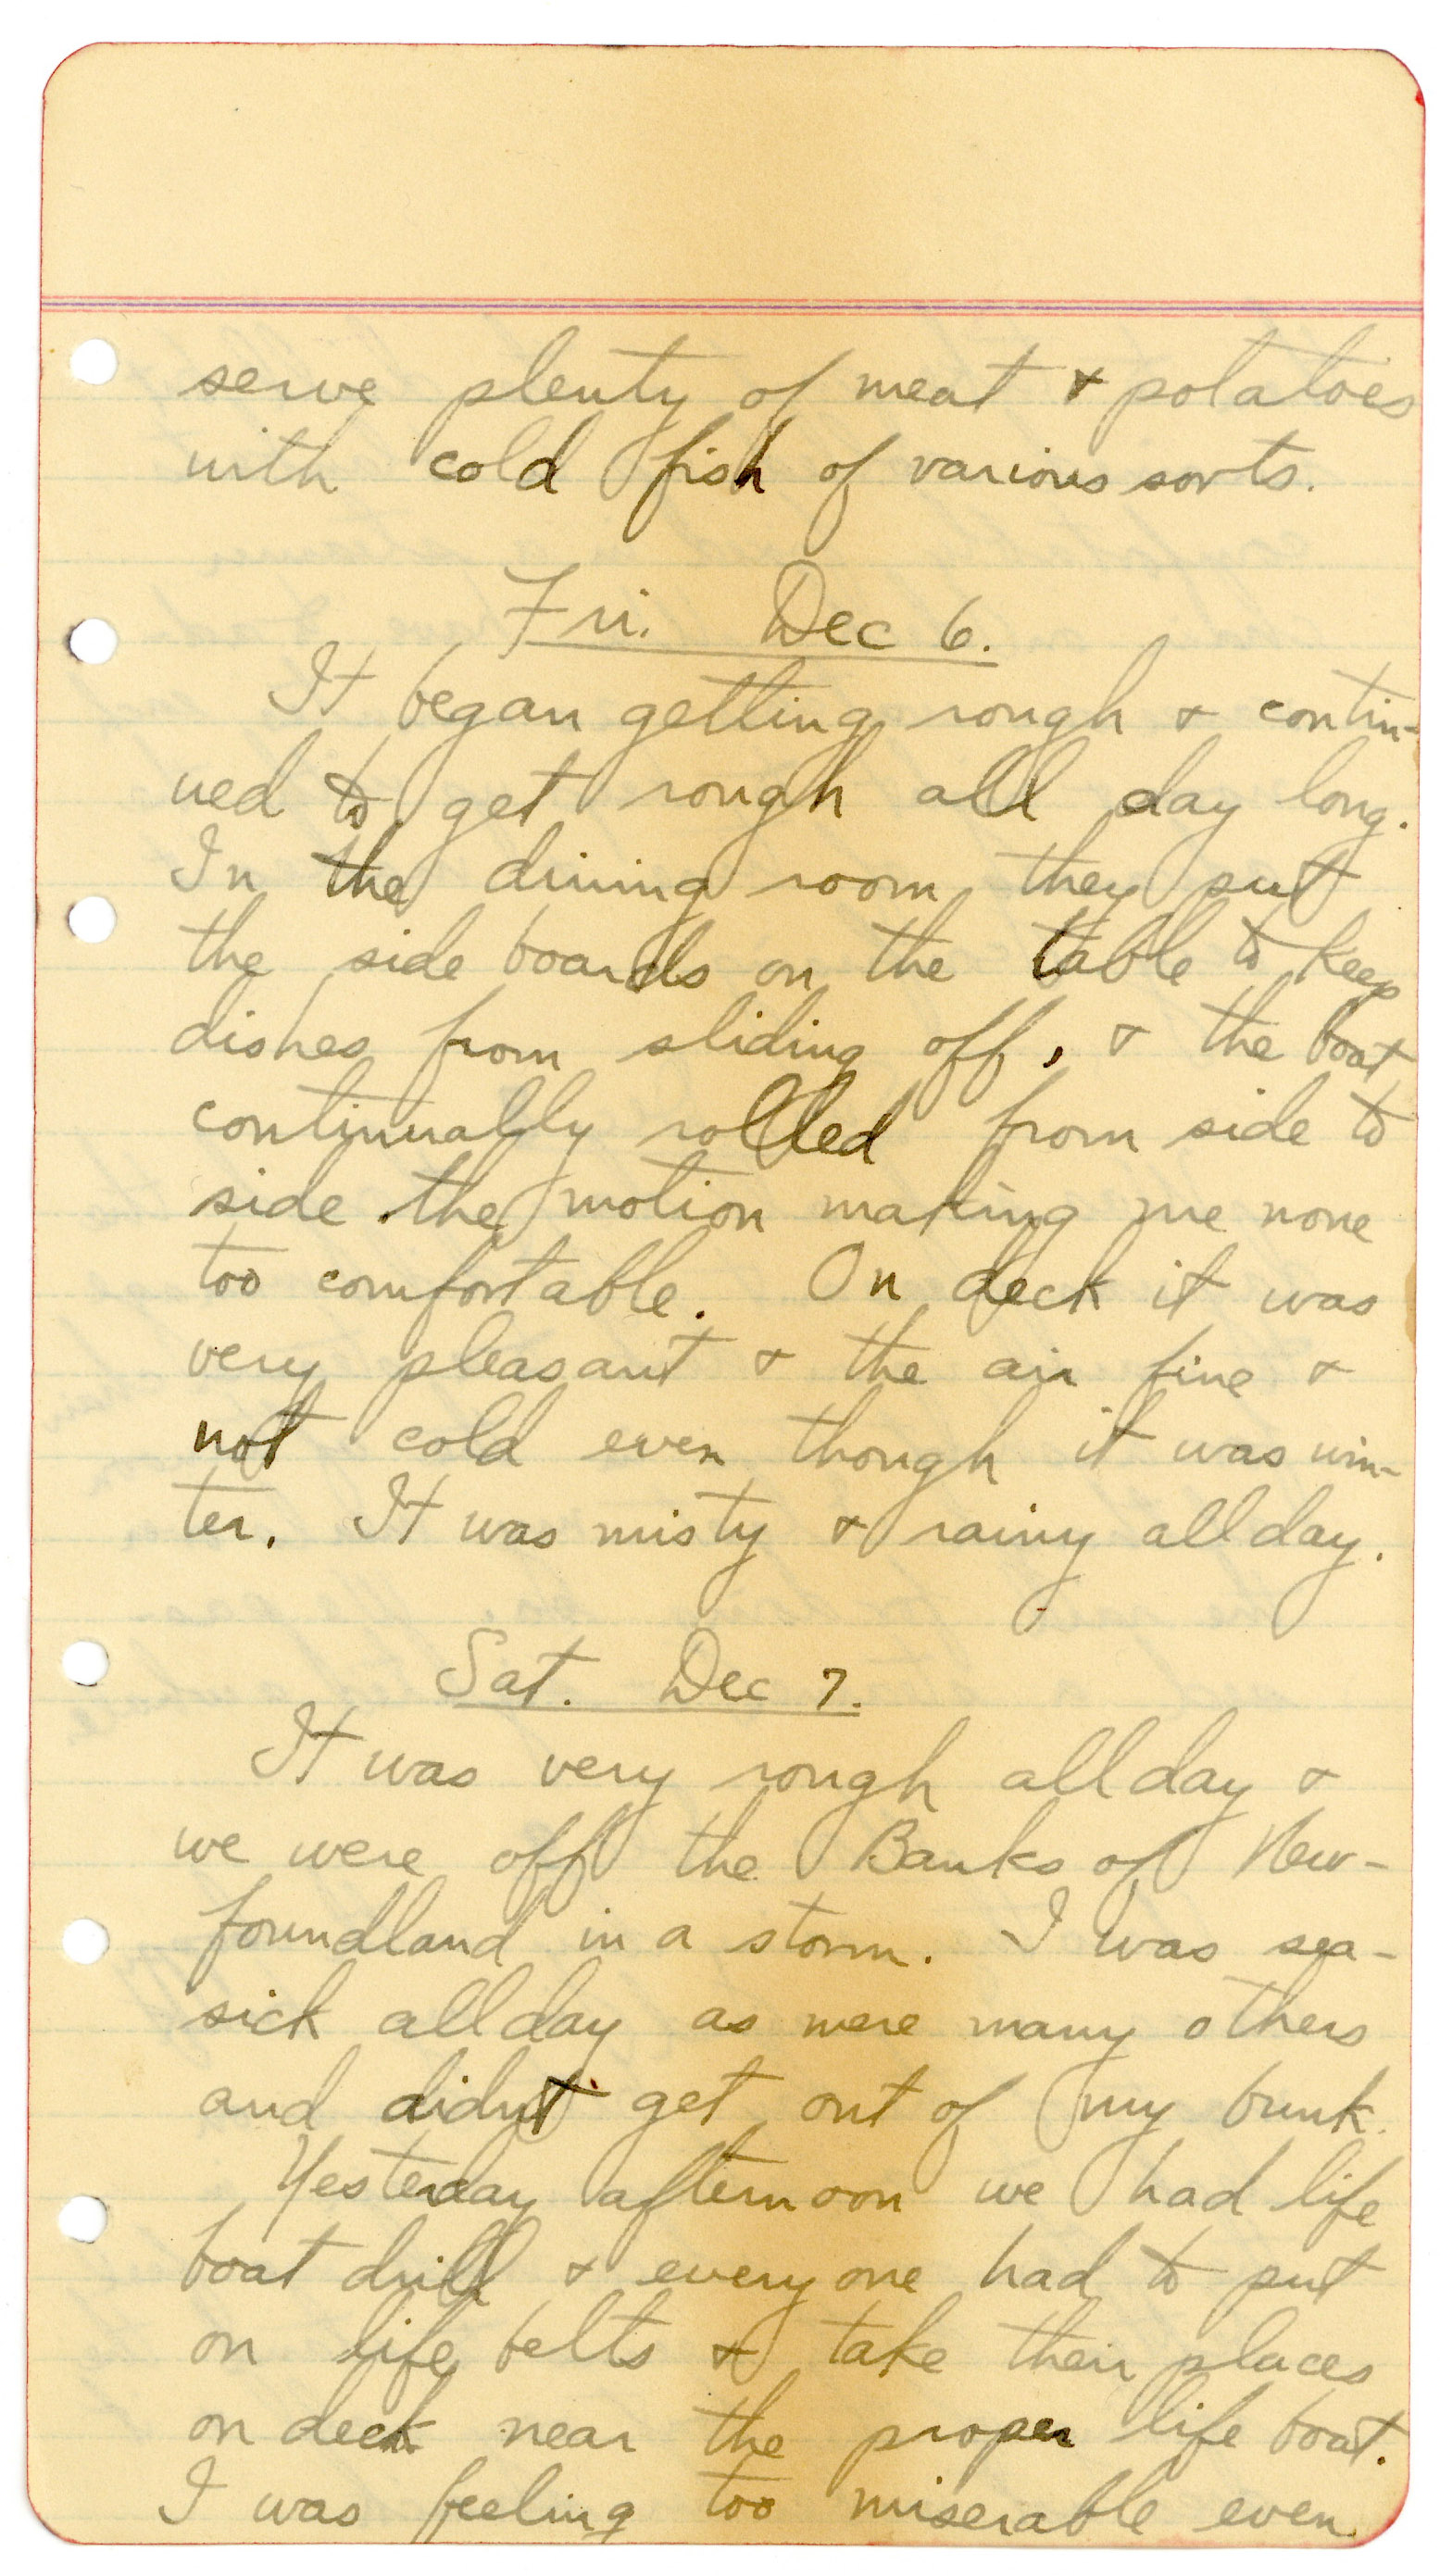 serve plenty of meat & potatoes
with cold fish of various sorts.
Fri. Dec 6.
It began getting rough & contin-
ued to get rough all day long.
In the dining room they put
the side boards on the table to keep
dishes from sliding off, & the boat
continually rolled from side to
side the motion making me none
too comfortable. On deck it was
very pleasant & the air fine &
not cold even though it was win-
ter. It was misty & rainy all day.
Sat. Dec 7.
It was very rough all day &
we were off the Banks of New-
foundland in a storm. I was sea-
sick all day as were many others
and didn't get out of my bunk.
Yesterday afternoon we had life
boat drill & every one had to put
on life belts & take their places
on deck near the proper life boat.
I was feeling too miserable even